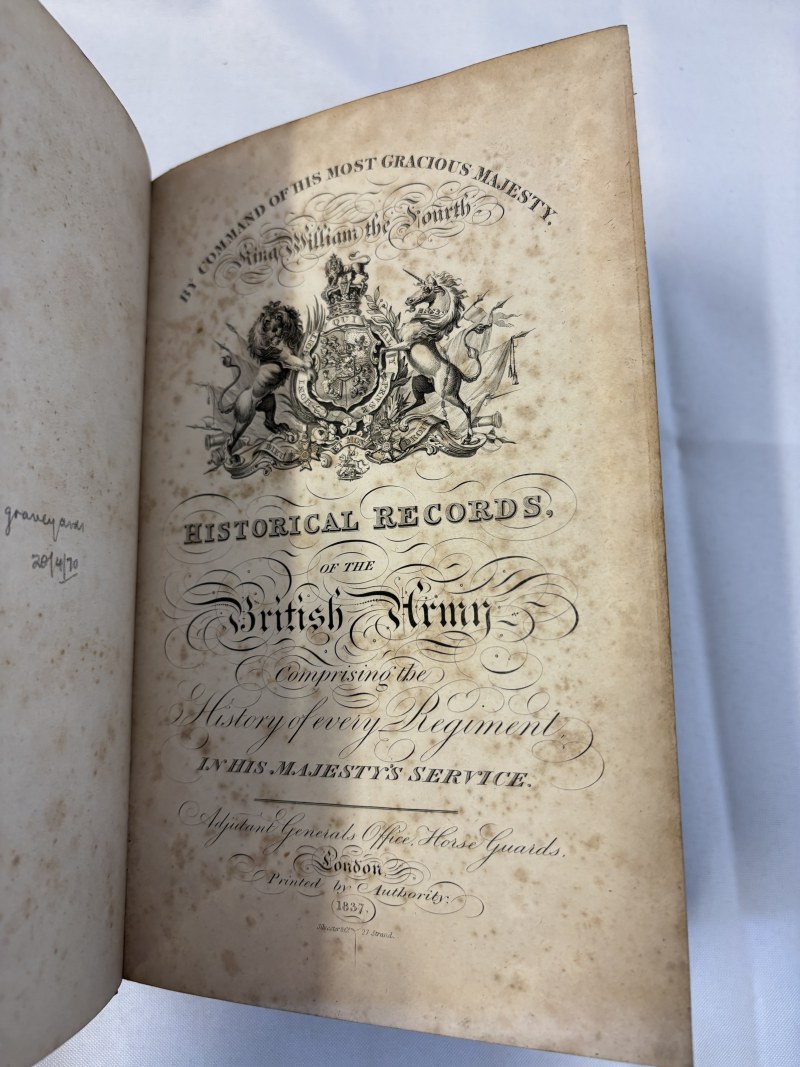 graveyards
28/4/70
BY COMMAND OF HIS MOST GRACIOUS MAJESTY.
King William the Fourth
QUI
HISTORICAL RECORDS,
OF THE
British Army
Comprising the
History of every Regiment
IN HIS MAJESTY'S SERVICE.
Adjutant Generals Office, Horse Guards,
London
Printed by Authority:
1837.
27 Strand.